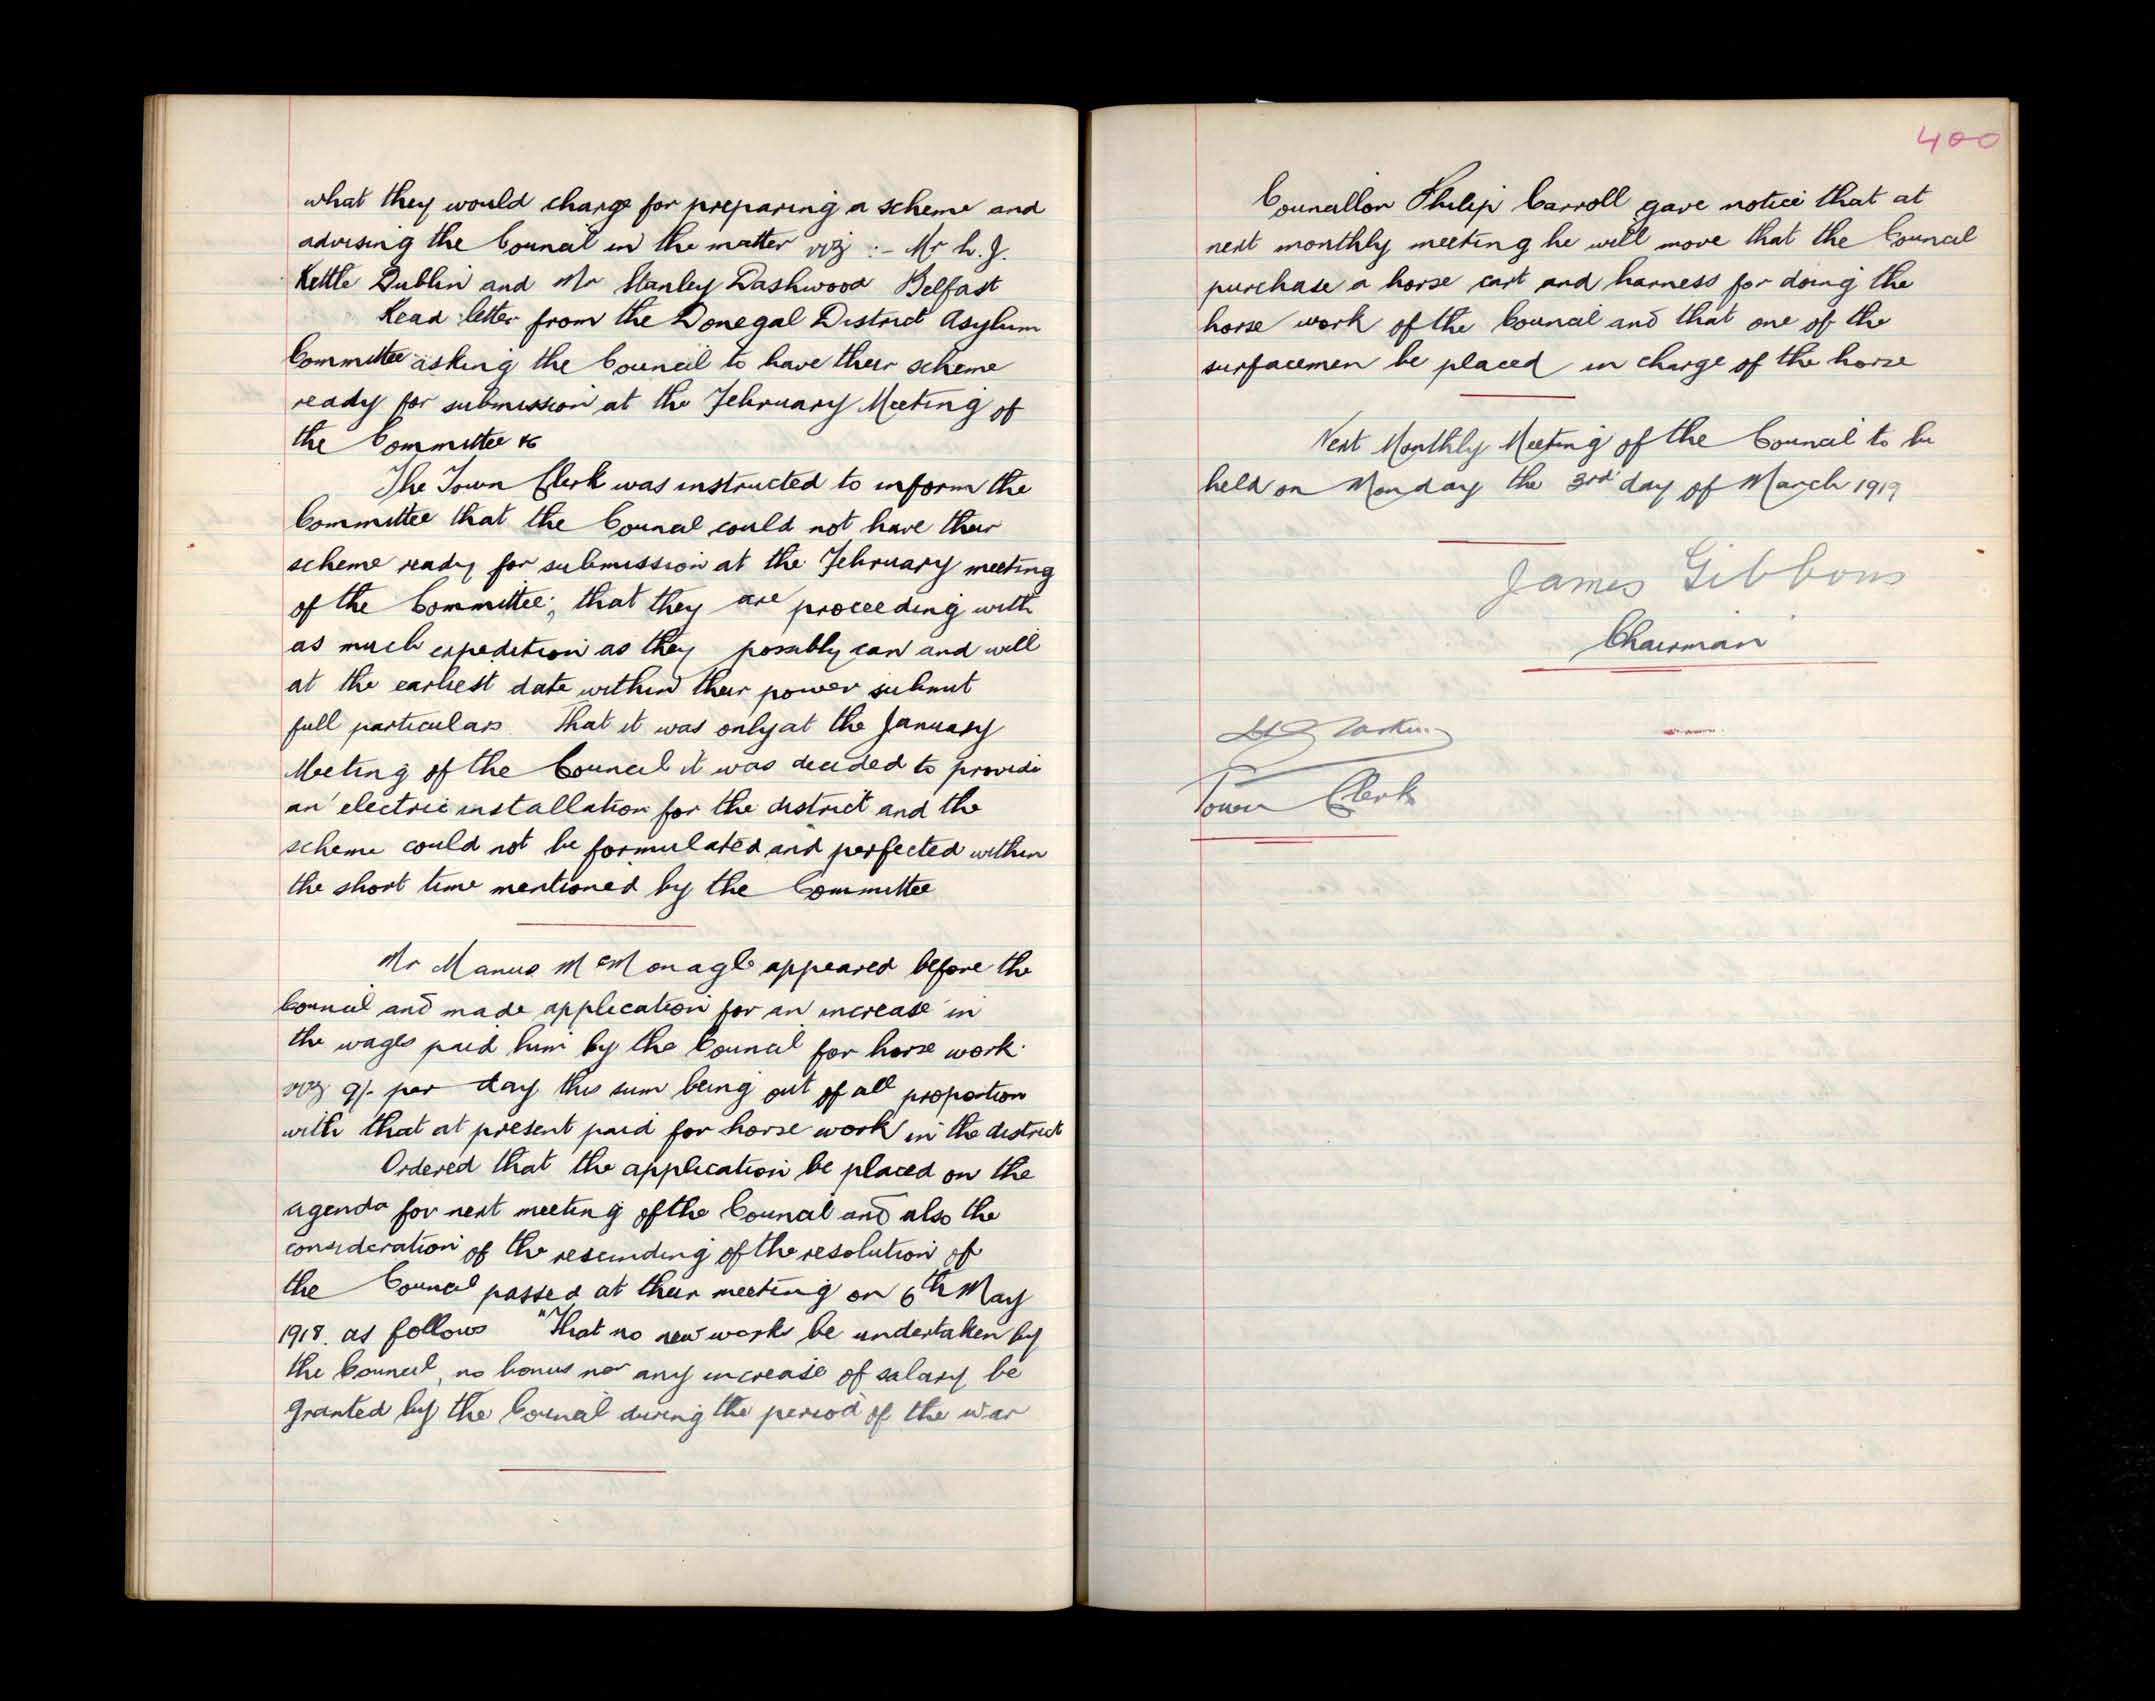 what they would charge for preparing a scheme and
advising the Council in the matter viz :- Mr L. J.
Kettle Dublin and Mr Stanley Dashwood Belfast
Read letter from the Donegal District Asylum
Committee asking the Council to have their scheme
ready for submission at the February Meeting of
the Committee &c
The Town Clerk was instructed to inform the
Committee that the Council could not have their
scheme ready for submission at the February meeting
of the Committee; that they are proceeding with
as much expedition as they possibly can and will
at the earliest date within their power submit
full particulars That it was only at the January
Meeting of the Council it was decided to provide
an electric installation for the district and the
scheme could not be formulated and perfected within
the short time mentioned by the Committee
Mr Manus McMonagle appeared before the
Council and made application for an increase in
the wages paid him by the Council for horse work
viz 9/- per day this sum being out of all proportion
with that at present paid for horse work in the district
Ordered that the application be placed on the
agenda for next meeting of the Council and also the
consideration of the rescinding of the resolution of
the Council passed at their meeting on 6th May
1918. as follows "That no new works be undertaken by
the Council, no bonus nor any increase of salary be
granted by the Council during the period of the war
400
Councillor Philip Carroll gave notice that at
next monthly meeting he will move that the Council
purchase a horse cart and harness for doing the
horse work of the Council and that one of the
surfacemen be placed in charge of the horse
Next Monthly Meeting of the Council to be
held on Monday the 3rd day of March 1919
James Gibbons
Chairman
Town Clerk